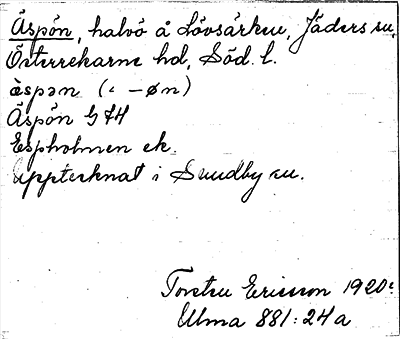 Äspön, halvö å Lövsärken, Jäders sn,
Österrekarne hd, Söd. l.
ὰspən (‘ -øn)
Äspön G 74
Espholmen ek.
upptecknat i Sundby sn.
Torsten Ericsson 1920
Ulma 881:24a